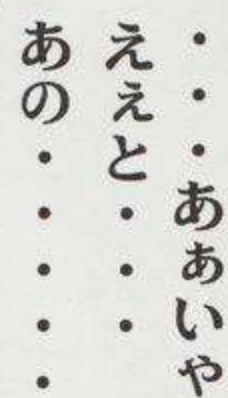 ・・・あぁいや
えぇと・・・
あの・・・・・